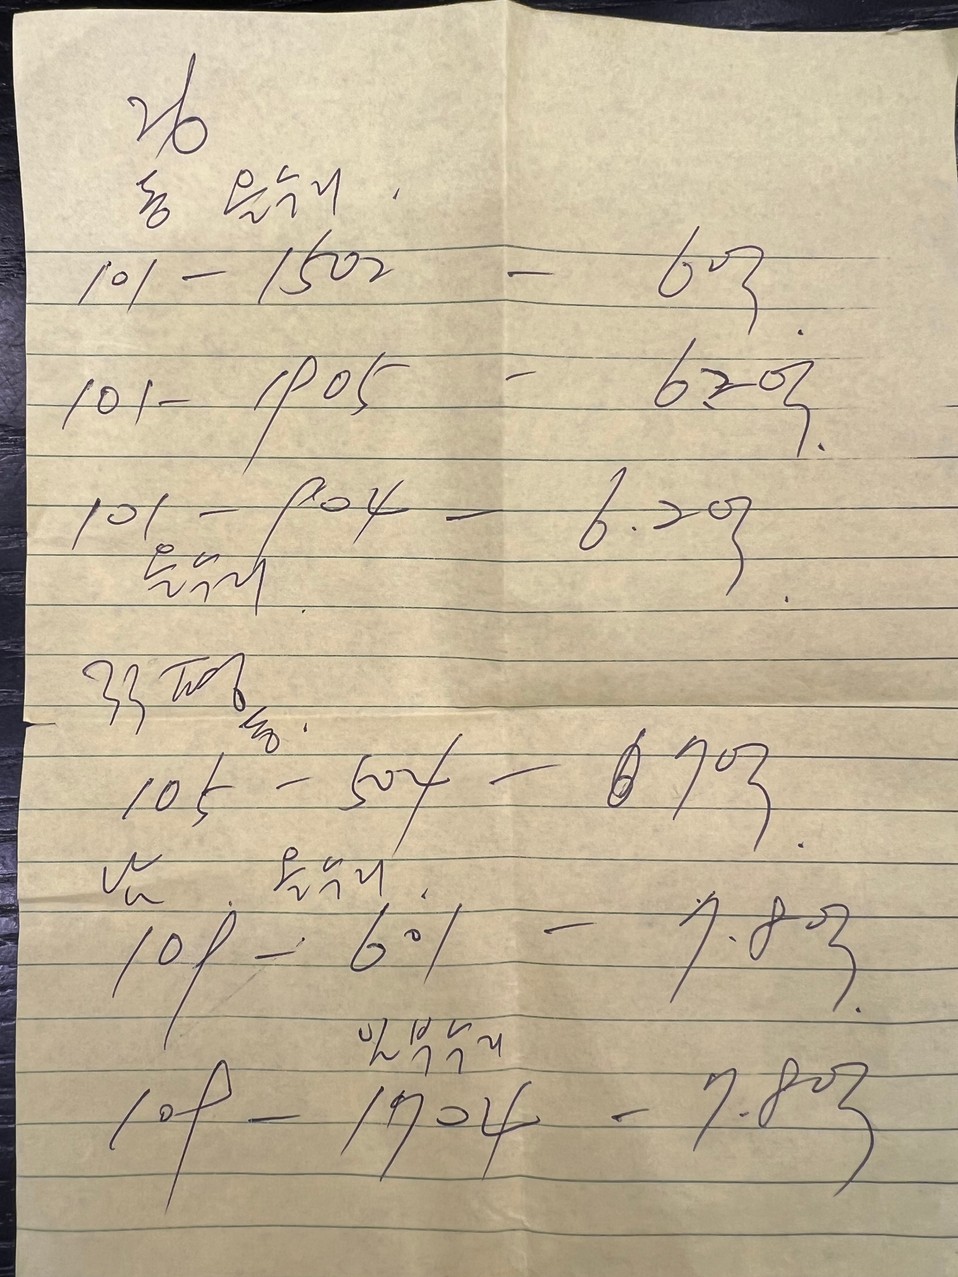 26
동 올수리.
101 - 1502 - 6억.
101 - 1905 - 6.2억.
101 - 904 - 6.2억.
올수리.
동.
105 - 504 - 7억.
올수리.
109 - 601 - 7.8억.
일부수리
109 - 1704 - 7.8억